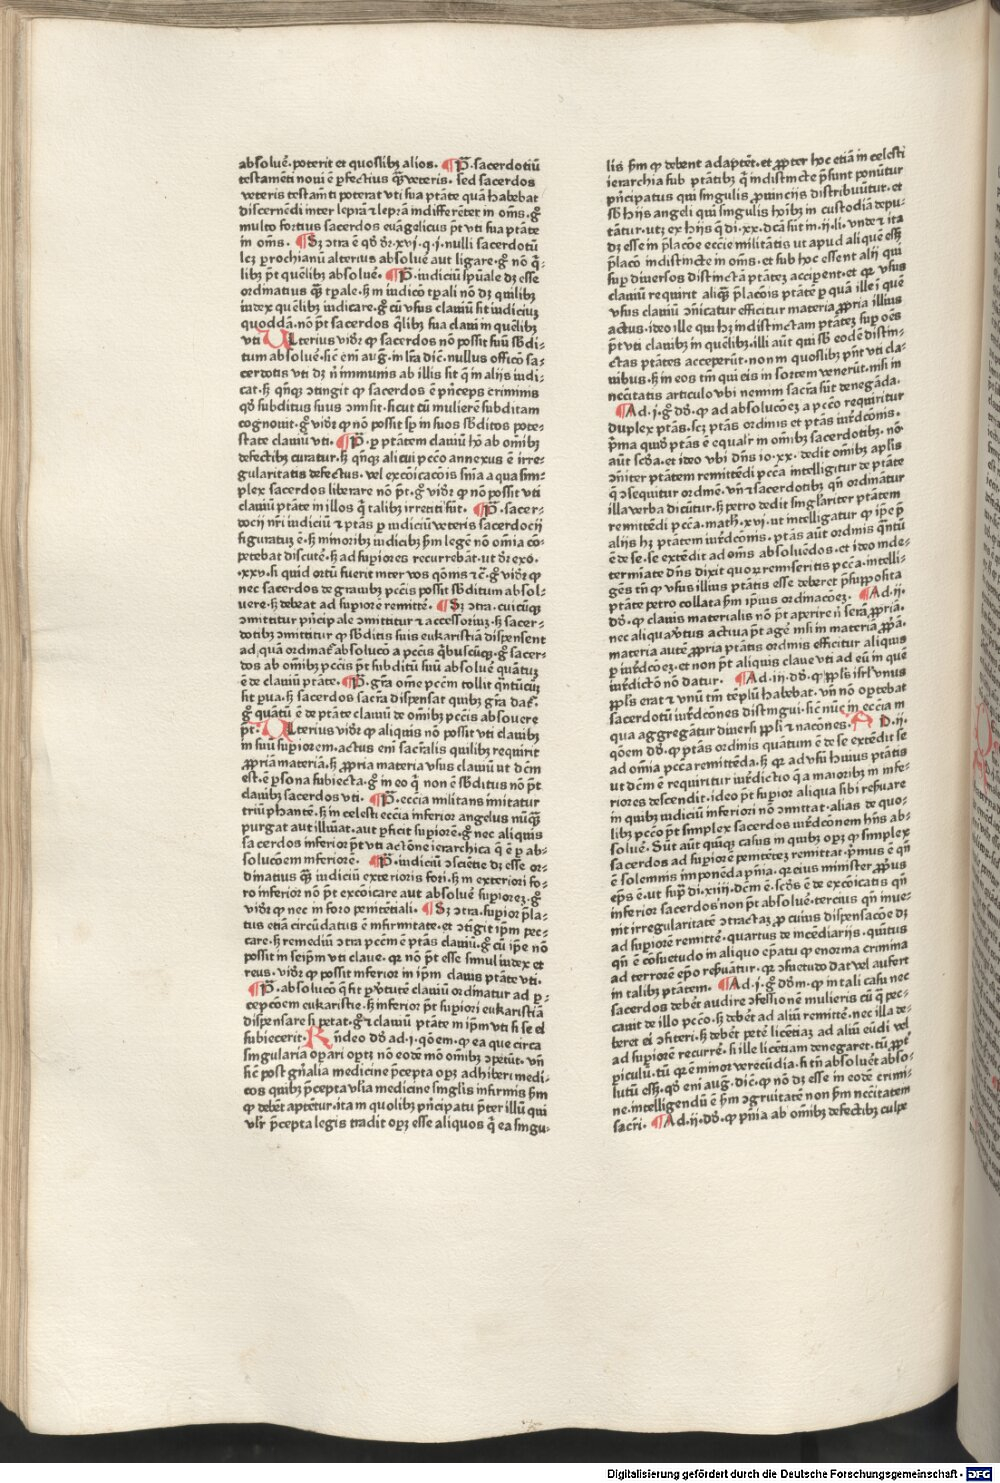 absoluẽ·poterit et quoslibꝫ alios. ¶ P̃·sacerdotiũ
testamẽti noui ẽ ꝑfectius qꝫ̃ veteris· sed sacerdos
veteris testam̃ti poterat vti sua ptãte quã habebat
discernẽdi inter leprã ⁊ leprã indifferẽter in om̃s·gͦ
multo fortius sacerdos euãgelicus p̃t vti sua ptãte
in om̃s· ¶ Sꝫ ↄtra ẽ qd̃ d̃r·xvi·q·i·nulli sacerdotũ
lcꝫ ꝑrochianũ alterius absoluẽ aut ligare·gͦ nõ q̃-
libꝫ p̃t quẽlibꝫ absoluẽ· ¶ P̃·iudiciũ sp̃uale dꝫ esse
ordinatius qꝫ̃ tp̃ale·sꝫ in iudico tp̃ali nõ dꝫ quilibꝫ
iudex quẽlibꝫ iudicare·gͦ cũ vsus clauiũ sit iudiciuꝫ
quoddã·nõ p̃t sacerdos q̃libꝫ sua claui in quẽlibꝫ
vti Vlterius vid̃r ꝙ sacerdos nõ possit suũ sb̃di-
tum absoluẽ·sic eni aug̃·in lr̃a dic̃·nullus officõ sa-
cerdotis vti dꝫ ñ immunis ab illis sit q̃ in alijs iudi-
cat·sꝫ qñqꝫ ↄtingit ꝙ sacerdos ẽ pñceps criminis
qd̃ subditus suus ↄmisit·sicut cũ mulierẽ subditam
cognouit·gͦ vid̃r ꝙ nõ possit sp̃ in suos sb̃ditos pote-
state clauiũ vti· ¶ P̃·ꝑ ptãtem clauiũ hõ ab om̃ibꝫ
defectibꝫ curatur·sꝫ qñqꝫ alicui pccõ annexus ẽ irre-
gularitatis defectus·vel excõicacõis sñia a qua sim-
plex sacerdos liberare nõ p̃t·gͦ vid̃r ꝙ nõ possit vti
clauiũ ptãte in illos q̃ talibꝫ irretiti sũt· ¶ P̃·sacer-
docij nr̃i iudiciũ ⁊ ptãs ꝑ iudiciũ veteris sacerdocij
figuratuꝫ ẽ·sꝫ minoribꝫ iudicibꝫ s̃m legẽ nõ om̃ia cõ-
petebat discutẽ·sꝫ ad suꝑiores recurrebãt·ut d̃r exo·
·xxv·si quid ortũ fuerit inter vos qõnis ⁊ c̃·gͦ vid̃r ꝙ
nec sacerdos de grauibꝫ pccis possit sb̃ditum absol-
uere·sꝫ debeat ad suꝑiorẽ remittẽ· ¶ Sꝫ ↄtra·cuicũqꝫ
ↄmittitur pñcipale ↄmittitur ⁊ accessoriuꝫ·sꝫ sacer-
dotibꝫ ↄmittitur ꝙ sb̃ditis suis eukaristiã dispensent
ad quã ordinat̃ absolucõ a pccis q̃buscũqꝫ·gͦ sacer-
dos ab om̃ibꝫ pccis p̃t subditũ suũ absoluẽ quãtuꝫ
ẽ de clauiũ ptãte· ¶ P̃·gr̃a om̃e pccm̃ tollit qñtucũqꝫ
sit ꝑua·sꝫ sacerdos sacr̃a dispensat quibꝫ gr̃a dat̃·
gͦ quãtũ ẽ de ptãte clauiũ de om̃ibꝫ pccis absouere
p̃t· Vlterius vid̃r ꝙ aliquis nõ possit vti clauibꝫ
in suũ suꝑiorem·actus eni sacr̃alis quilibꝫ requirit
ꝓpriã materiã·sꝫ ꝓpria materia vsus clauiũ ut dc̃m
est·ẽ ꝑsona subiecta·gͦ in eo q̃ non ẽ sb̃ditus nõ p̃t
clauibꝫ sacerdos vti· ¶ P̃·eccia militans imitatur
triũphantẽ·sꝫ in celesti eccia inferior angelus nũqꝫ̃
purgat aut illuĩat·aut ꝑficit suꝑiorẽ·gͦ nec aliquis
sa cerdos inferior p̃t vti actõne ierarchica q̃ ẽ ꝑ ab-
solucõem inferiorẽ· ¶ P̃·iudiciũ ↄsciẽtie dꝫ esse or-
dinatius qꝫ̃ iudiciũ exterioris fori·sꝫ in exteriori fo-
ro inferior nõ p̃t excõicare aut absoluẽ suꝑioreꝫ·gͦ
vid̃r ꝙ nec in foro penitẽtiali· ¶ Sꝫ ↄtra·suꝑior p̃la-
tus etiã circũdatus ẽ infirmitate·et ↄtigit ip̃m pec-
care·sꝫ remediũ ↄtra pccm̃ ẽ ptãs clauiũ·gͦ cũ ip̃e nõ
possit in seip̃m vti claue·qr̃ nõ p̃t esse simul iudex et
reus·vid̃r ꝙ possit inferior in ip̃m clauis ptãte vti·
¶ P̃·absolucõ q̃ fit ꝑ v̾tutẽ clauiũ ordinatur ad ꝑ-
cepcõem eukaristie·sꝫ inferior p̃t suꝑiori eukaristiã
dispensare si petat·gͦ ⁊ clauiũ ptãte in ip̃m vti si se ei
subiecerit· Rñdeo dd̃ ad·i·qõem·ꝙ ea que circa
singularia oꝑari optꝫ nõ eodẽ mõ om̃ibꝫ ↄpetũt·vñ
sic post gñalia medicine p̃cepta opꝫ adhiberi medi-
cos quibꝫ p̃cepta vl̃ia medicine singlis infirmis s̃m
ꝙ debẽt aptẽtur·ita in quolibꝫ pñcipatu p̃ter illũ qui
vl̃r p̃cepta legis tradit opꝫ esse aliquos q̃ ea singu-
lis s̃m ꝙ debent adaptẽt·et ꝓpter hoc etiã in celesti
ierarchia sub ptãtibꝫ q̃ indistincte p̃sunt ponũtur
pñcipatus qui singulis ꝓuincijs distribuũtur·et
sb̃ hijs angeli qui singulis hoĩbꝫ in custodiã depu-
tãtur·utꝫ ex hijs q̃ di·xx·dc̃a sũt in·ii·li·vnde ⁊ ita
dꝫ esse in p̃lacõe eccie militãtis ut apud aliquẽ esseꝫ
p̃lacõ indistincte in om̃s·et sub hoc essent alij qui
suꝑ diuersos distinctã ptãteꝫ acciperent·et qꝛ vsus
clauiũ requirit aliqꝫ̃ p̃lacõis ptãtẽ ꝑ quã ille ĩ quẽ
vsus clauiũ ↄ̃nicatur efficitur materia ꝓpria illius
actus·ideo ille qui hꝫ indistinctam ptãteꝫ suꝑ om̃s
p̃t vti clauibꝫ in quẽlibꝫ·illi aũt qui sb̃ eodẽ distin-
ctas ptãtes acceperũt·non in quoslibꝫ pñt vti cla-
uibus·sꝫ in eos tm̃ qui eis in sortem venerũt·nisi in
nccitatis articulo vbi nemini sacr̃a sũt denegãda·
¶ Ad·i·gͦ dd̃·ꝙ ad absolucõeꝫ a pccõ requiritur
duplex ptãs·scꝫ ptãs ordinis et ptãs iur̃dcõnis·
p̃ma quid̃ ptãs ẽ equalr̃ in om̃ibꝫ sacerdotibꝫ·nõ·
aũt scd̃a·et ideo vbi dñs io·xx·dedit om̃ibꝫ aplis
ↄ̃niter ptãtem remittẽdi pccã intelligitur de ptãte
q̃ ↄsequitur ordinẽ·vñ ⁊ sacerdotibꝫ qñ ordinãtur
illa verba dicũtur·sꝫ petro dedit singl̃ariter ptãtem
remittẽdi pccã·math̃·xvi·ut intelligatur ꝙ ip̃e p̃
alijs hꝫ ptãtem iur̃dcõnis·ptãs aũt ordinis qñtũ
ẽ de se·se extẽdit ad om̃s absoluẽdos·et ideo inde-
terminate dñs dixit quoꝝ remiseritis pccã·intelli-
gẽs tñ ꝙ vsus illius ptãtis esse deberet p̃supposita
ptãte petro collata s̃m ipius ordinacõeꝫ· ¶ Ad·ii·
dd̃·ꝙ clauis materialis nõ p̃t aperire ñ serã ꝓpriã·
nec aliqua v̾tus actiua p̃t agẽ nisi in materiã ꝓpã·
materia autẽ ꝓpria ptãtis ordinis efficitur aliquis
ꝑ iur̃dcõeꝫ·et non p̃t aliquis claue vti ad eũ in quẽ
iur̃dictõ nõ datur· ¶ Ad·iii·dd̃·ꝙ ppl̃s isrl̃ vnus
ppl̃s erat ⁊ vnũ tm̃ tẽplũ habebat·vñ nõ oꝑtebat
sacerdotũ iur̃dcõnes distingui·sic nũc in eccia in
qua aggregãtur diuersi ppl̃i ⁊ nacõnes· AD·ii·
qõem dd̃·ꝙ ptãs ordinis quãtum ẽ de se extẽdit se
ad om̃ia pccã remittẽda·sꝫ qꝛ ad vsũ huius ptãtis
ut dc̃m ẽ requiritur iur̃dictio q̃ a maioribꝫ in infe-
riores descendit·ideo p̃t suꝑior aliqua sibi res̾uare
in quibꝫ iudiciũ inferiori nõ ↄmittat·alias de quo-
libꝫ pccõ p̃t simplex sacerdos iur̃dcõnem hñs ab-
soluẽ· Sũt aũt quiqꝫ casus in quibꝫ opꝫ ꝙ simplex
sacerdos ad suꝑiorẽ peniteteꝫ remittat·p̃mus ẽ qñ
ẽ solemnis imponẽda pñia·qꝛ eius minister ꝓpus
ep̃s ẽ·ut sup̃ di·xiiii·dc̃m ẽ·scd̃s ẽ de excõicatis qñ
inferior sacerdos nõn p̃t absoluẽ·tercius qñ inue-
nit irregularitatẽ ↄtractaꝫ ꝓ cuius dispensacõe dꝫ
ad suꝑiorẽ remittẽ·quartus de incẽdiarijs·quĩtus
qñ ẽ cõsuetudo in aliquo ep̃atu ꝙ enorma crimina
ad terrorẽ ep̃o res̾uãtur·qꝛ ↄsuetudo dat vel aufert
in talibꝫ ptãtem· ¶ Ad·i·gͦ dd̃m·ꝙ in tali casu nec
sacerdos debẽt audire ↄfessio nẽ mulieris cũ q̃ pec-
cauit de illo pccõ·sꝫ debẽt ad aliũ remittẽ·nec illa de-
beret ei ↄfiteri·sꝫ debẽt petẽ licẽtiaꝫ ad aliũ eũdi vel
ad suꝑiorẽ recurrẽ·si ille licẽtiam denegaret·tũ ꝓpt̃
ꝑiculũ·tũ qꝛ ẽ minor verecũ dia·si tñ absoluẽt abso-
lutũ essꝫ·qd̃ eni aug̃·dic̃·ꝙ nõ dꝫ esse in eodẽ crimi-
ne·intelligendũ ẽ s̃m ↄgruitatẽ non s̃m nccitatem
sacr̃i· ¶ Ad·ii·dd̃·ꝙ pñia ab om̃ibꝫ defectibꝫ culpe
Digitalisierung gefördert durch die Deutsche Forschungsgemeinschaft - DFG